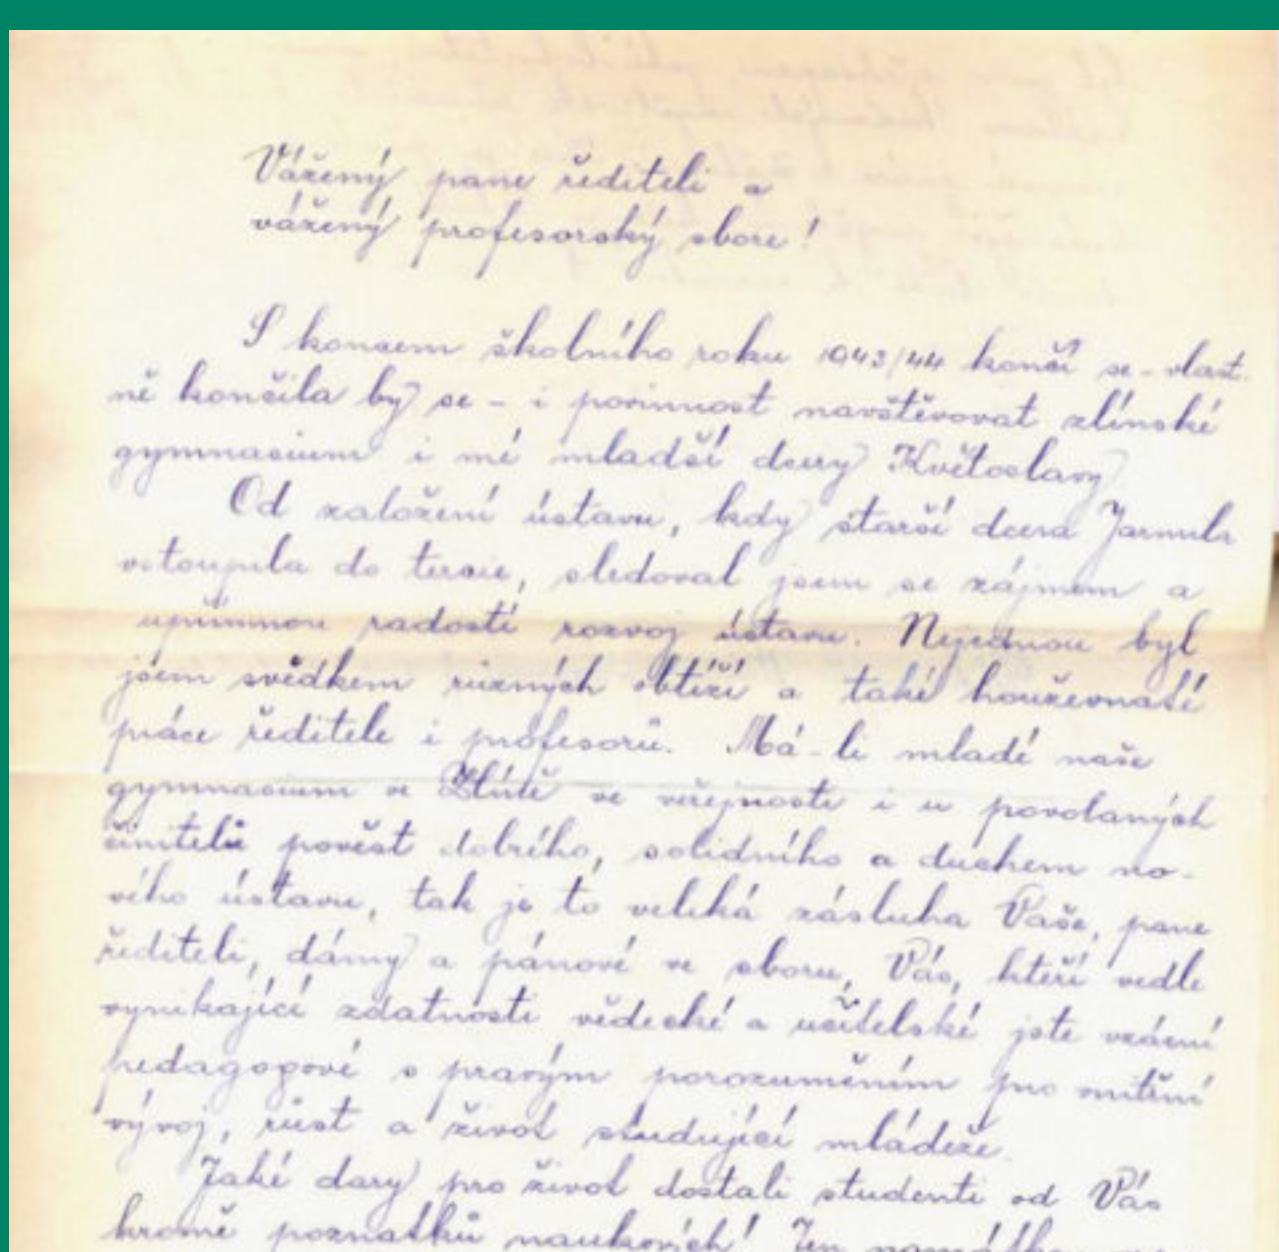 Vážený pane řediteli a
vážený profesorský sbore!
S koncem školního roku 1943/44 končí se - vlast-
ně končila by se - i povinnost navštěvovat zlínské
gymnasium i mé mladší dcery Květoslavy.
Od založení ústavu, kdy starší dcera Jarmila
vstoupila do tercie, sledoval jsem se zájmem a
upřímnou radostí rozvoj ústavu. Nejednou byl
jsem svědkem různých obtíží a také houževnaté
práce ředitele i profesorů. Má-li mladé naše
gymnasium ve Zlíně ve veřejnosti i u povolaných
činitelů pověst dobrého, solidního a duchem no-
vého ústavu, tak je to veliká zásluha Vaše, pane
řediteli, dámy a pánové ve sboru, Vás, kteří vedle
vynikající zdatnosti vědecké a učitelské jste vzácní
pedagogové s pravým porozuměním pro vnitřní
vývoj, růst a život studující mládeže.
Jaké dary pro život dostali studenti od Vás
kromě poznatků naukových! Jen